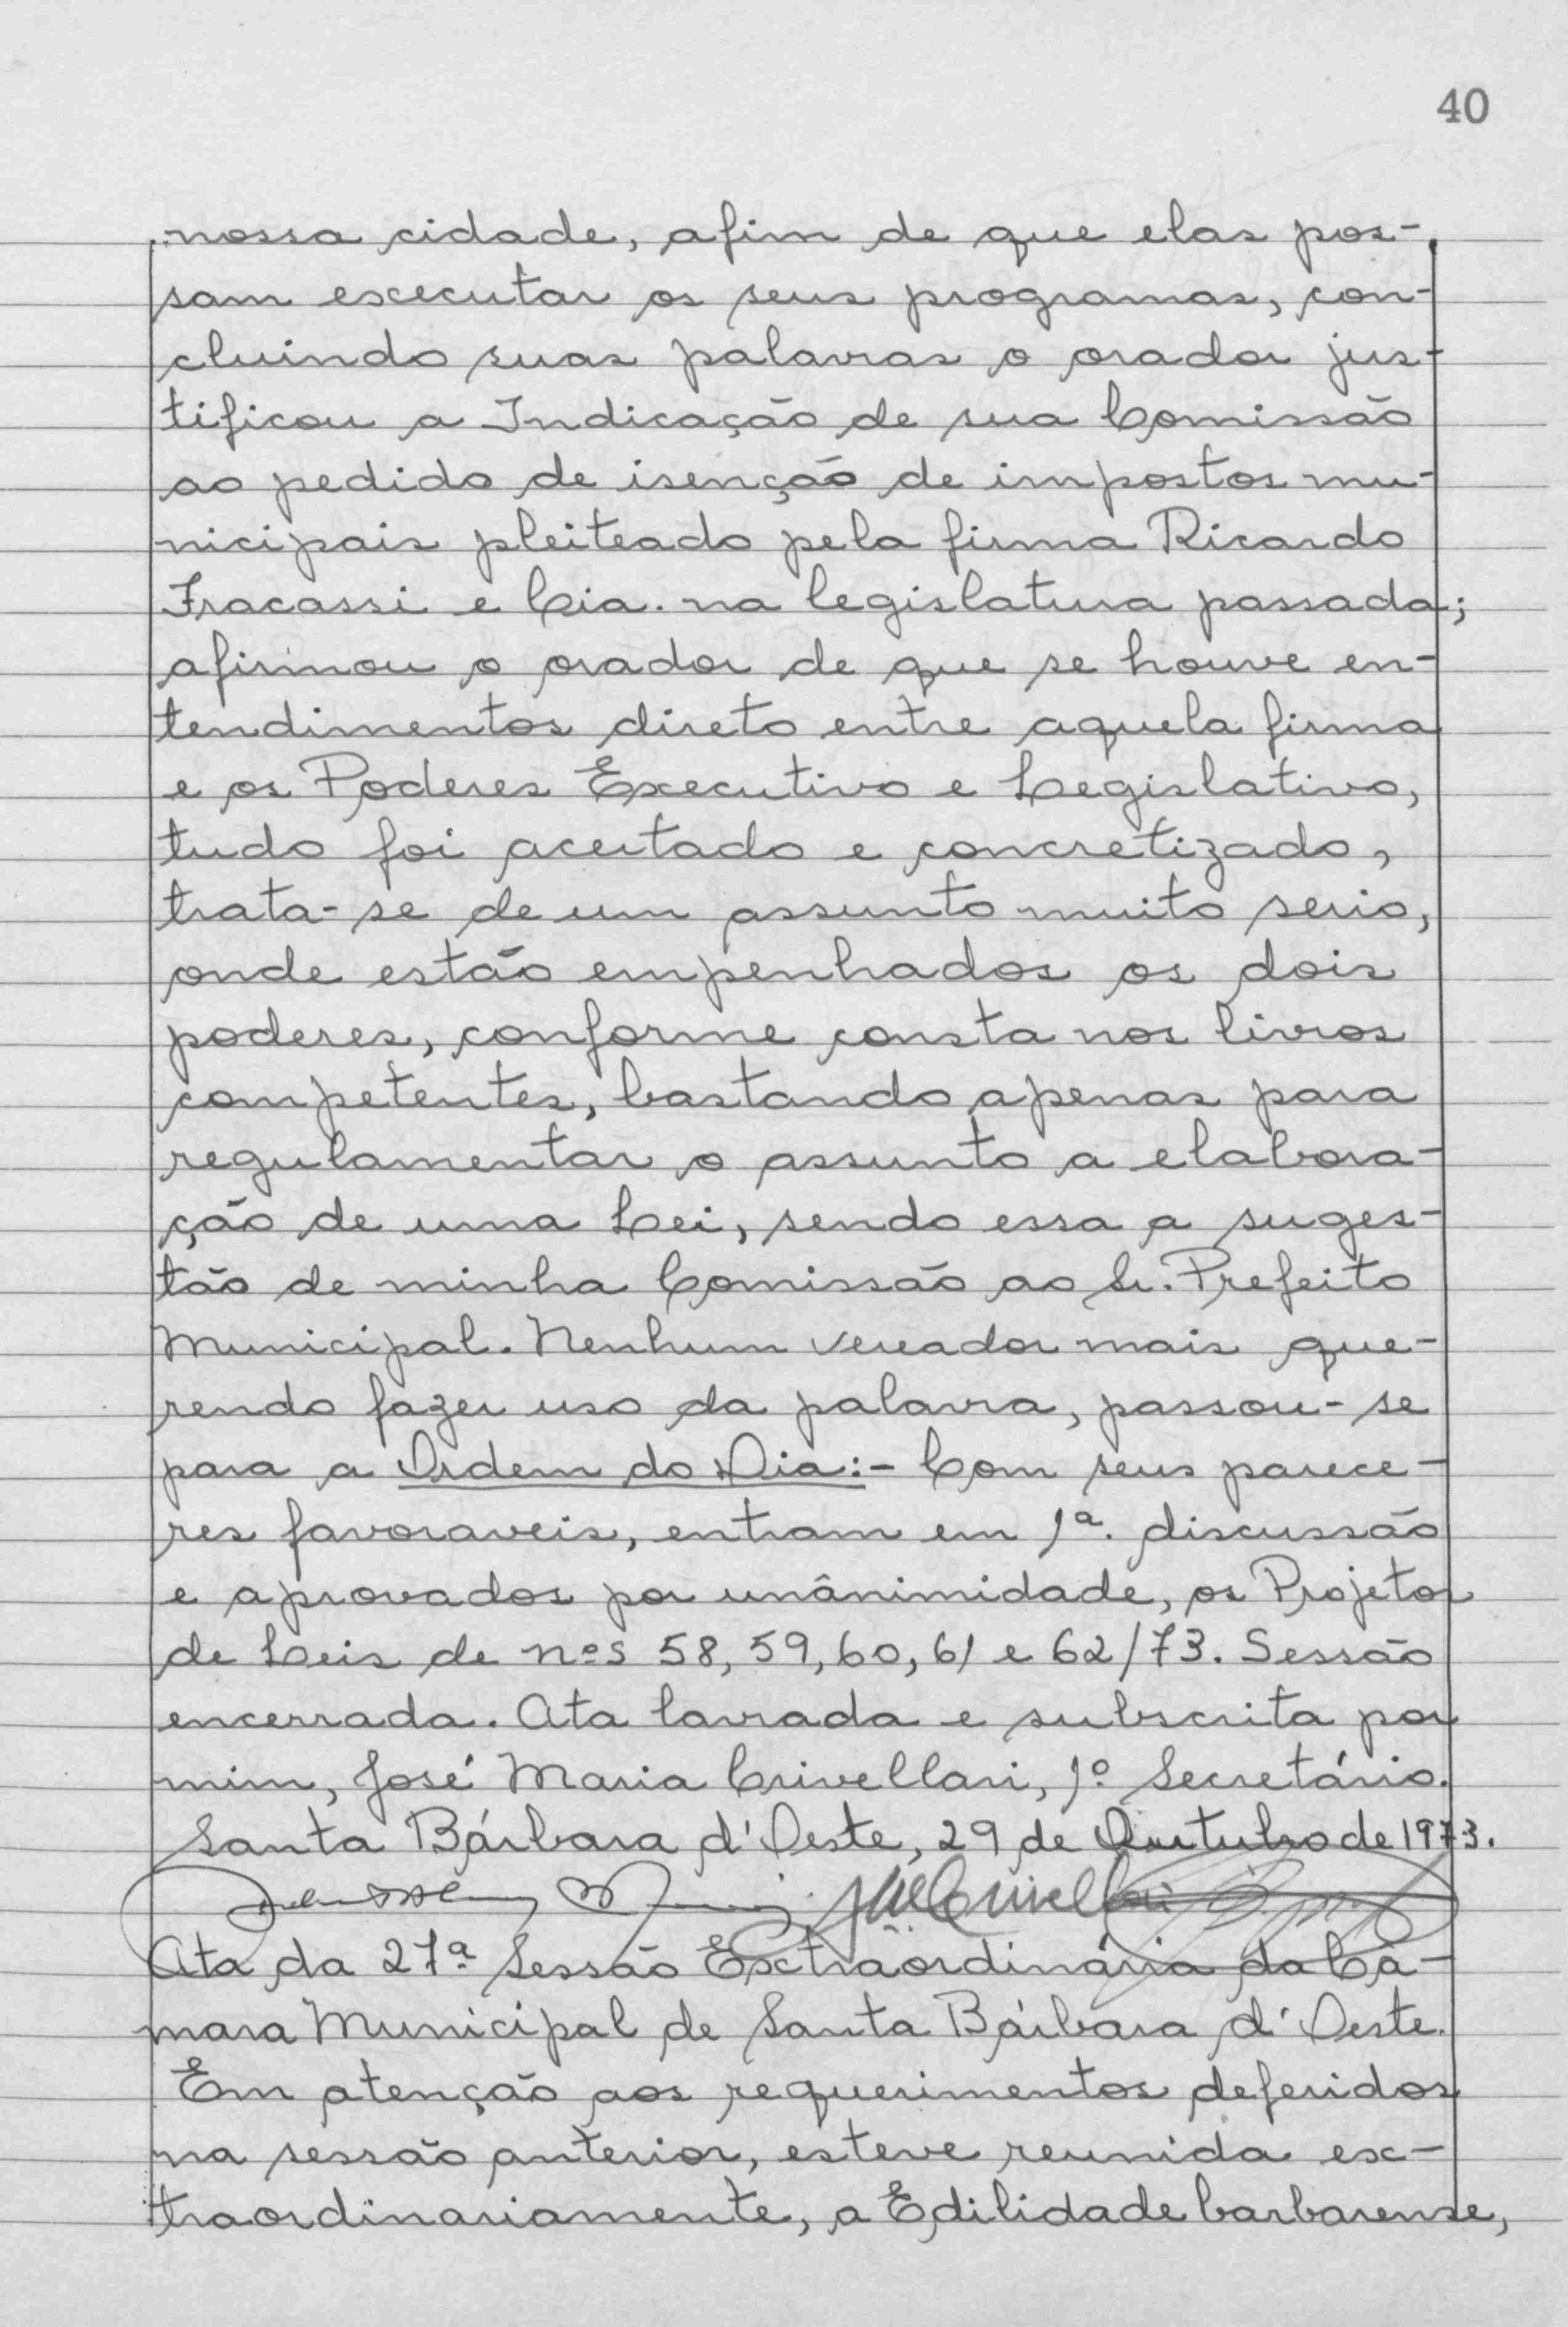 40
nossa cidade, afim de que elas pos-
sam executar os seus programas, con-
cluindo suas palavras o orador jus-
tificou a Indicação de sua Comissão
ao pedido de isenção de impostos mu-
nicipais pleiteado pela firma Ricardo
Fracassi e Cia. na legislatura passada;
afirmou o orador de que se houve en-
tendimentos direto entre aquela firma
e os Poderes Executivo e Legislativo,
tudo foi acertado e concretizado,
trata-se de um assunto muito serio,
onde estão empenhados os dois
poderes, conforme consta nos livros
competentes, bastando apenas para
regulamentar o assunto a elabora-
ção de uma Lei, sendo essa a suges-
tão de minha Comissão ao Sr. Prefeito
Municipal. Nenhum vereador mais que-
rendo fazer uso da palavra, passou-se
para a Ordem do Dia:- Com seus parece-
res favoraveis, entram em 1ª. discussão
e aprovados por unânimidade, os Projetos
de Leis de nºs 58, 59, 60, 61 e 62/73. Sessão
encerrada. Ata lavrada e subscrita por
mim, José Maria Crivellari, 1º Secretário.
Santa Bárbara d'Oeste, 29 de Outubro de 1973.
Crivellari
Ata da 27ª Sessão Extraordinária da Câ-
mara Municipal de Santa Bárbara d'Oeste.
Em atenção aos requerimentos deferidos
na sessão anterior, esteve reunida ex-
traordinariamente, a Edilidade barbarense,